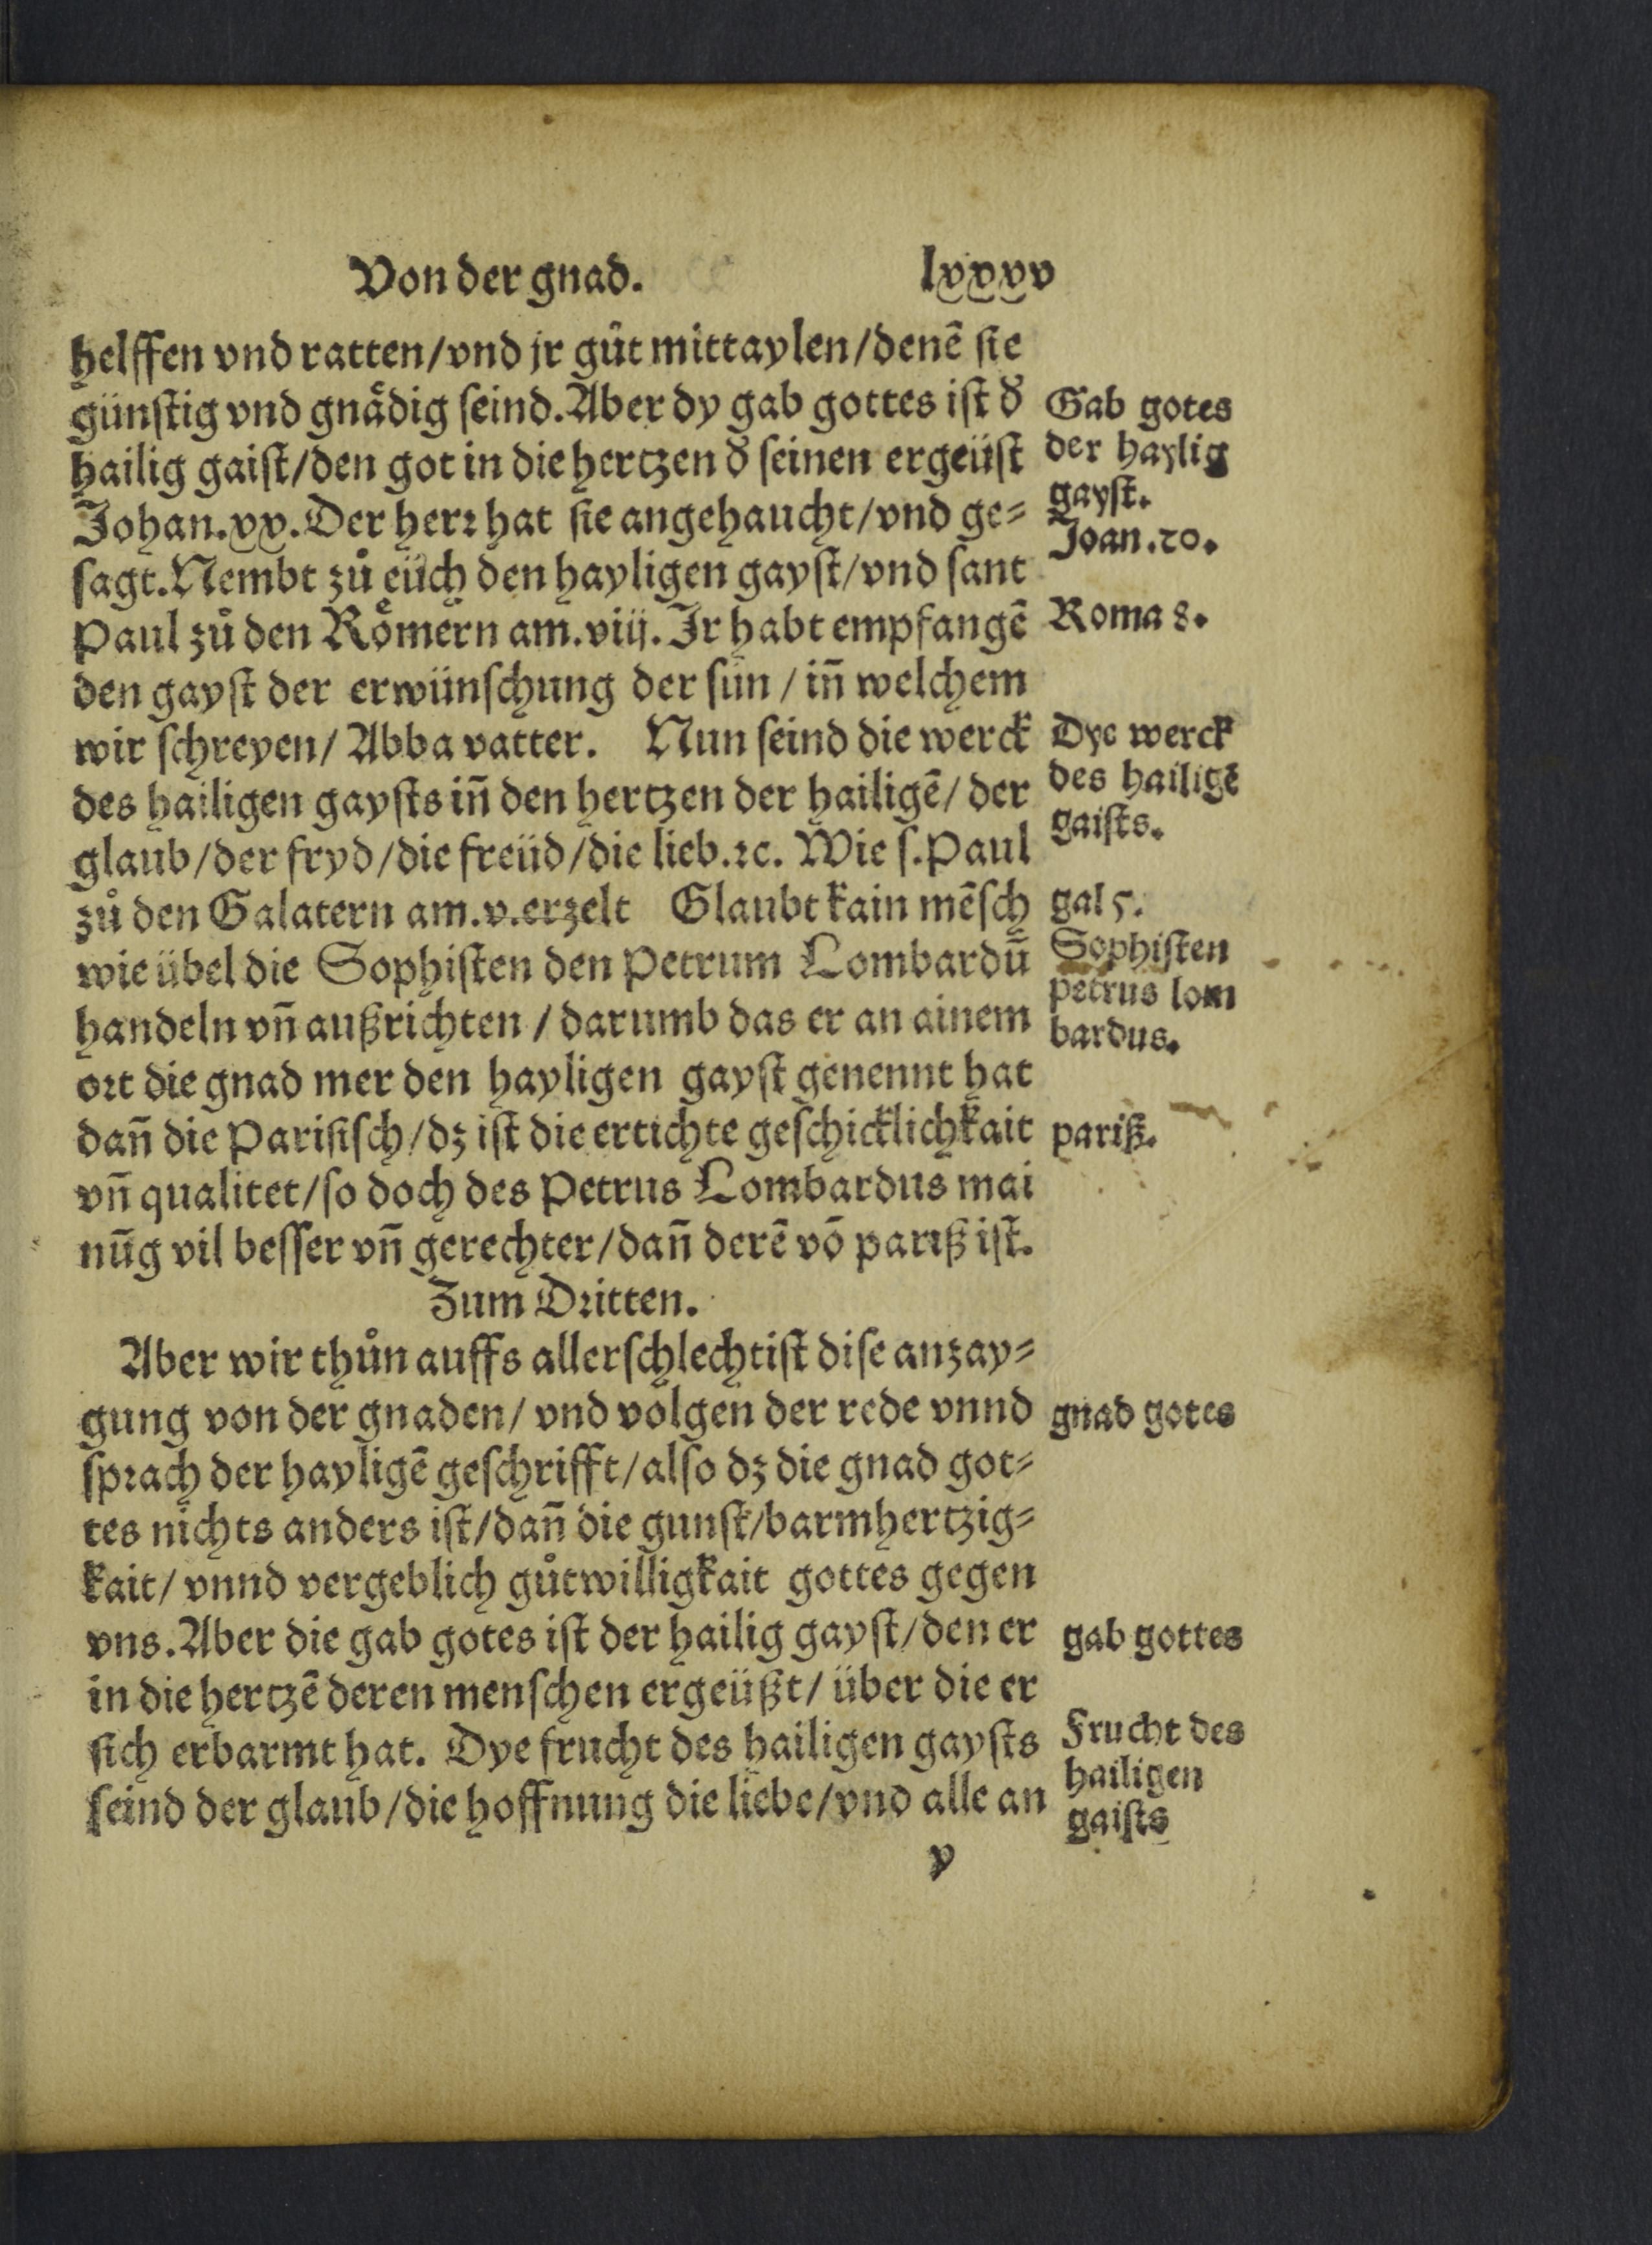 Von der gnad. lxxxv
helffen vnd ratten/vnd jr gůt mittaylen/denē ſie
günſtig vnd gnaͤdig ſeind. Aber dy gab gottes iſt ð
hailig gaiſt/den got in die hertzen ð ſeinen ergeüſt
Johan.xx. Der herꝛ hat ſie angehaucht/vnd ge⸗
ſagt. Nembt zů eüch den hayligen gayſt/vnd ſant
Paul zů den Roͤmern am.viij. Jr habt empfangē
den gayſt der erwünſchung der ſün / iñ welchem
wir ſchreyen/ Abba vatter. Nun ſeind die werck
des hailigen gayſts iñ den hertzen der hailigē/ der
glaub/der fryd/die freüd/die lieb.ꝛc. Wie ſ. Paul
zů den Galatern am.v.erzelt Glaubt kain mēſch
wie übel die Sophiſten den Petrum Lombardū
handeln vñ außrichten / darumb das er an ainem
oꝛt die gnad mer den hayligen gayſt genennt hat
dañ die Pariſiſch/dz iſt die ertichte geſchicklichkait
vñ qualitet/ſo doch des Petrus Lombardus mai
nūg vil beſſer vñ gerechter/dañ derē vō pariß iſt.
Zum Dꝛitten.
Aber wir thůn auffs allerſchlechtiſt diſe anzay⸗
gung von der gnaden/ vnd volgen der rede vnnd
ſpꝛach der hayligē geſchrifft/alſo dz die gnad got⸗
tes nichts anders iſt/dañ die gunſt/barmhertzig⸗
kait/ vnnd vergeblich gůtwilligkait gottes gegen
vns. Aber die gab gotes iſt der hailig gayſt/den er
in die hertzē deren menſchen ergeüßt/ über die er
ſich erbarmt hat. Dye frucht des hailigen gayſts
ſeind der glaub/die hoffnung die liebe/vnd alle an
y
Gab gotes
der haylig
gayſt.
Joan.20.
Roma 8.
Dye werck
des hailigē
gaiſts.
gal 5.
Sophiſten
petrus lom
bardus.
pariß.
gnad gotes
gab gottes
Frucht des
hailigen
gaiſts